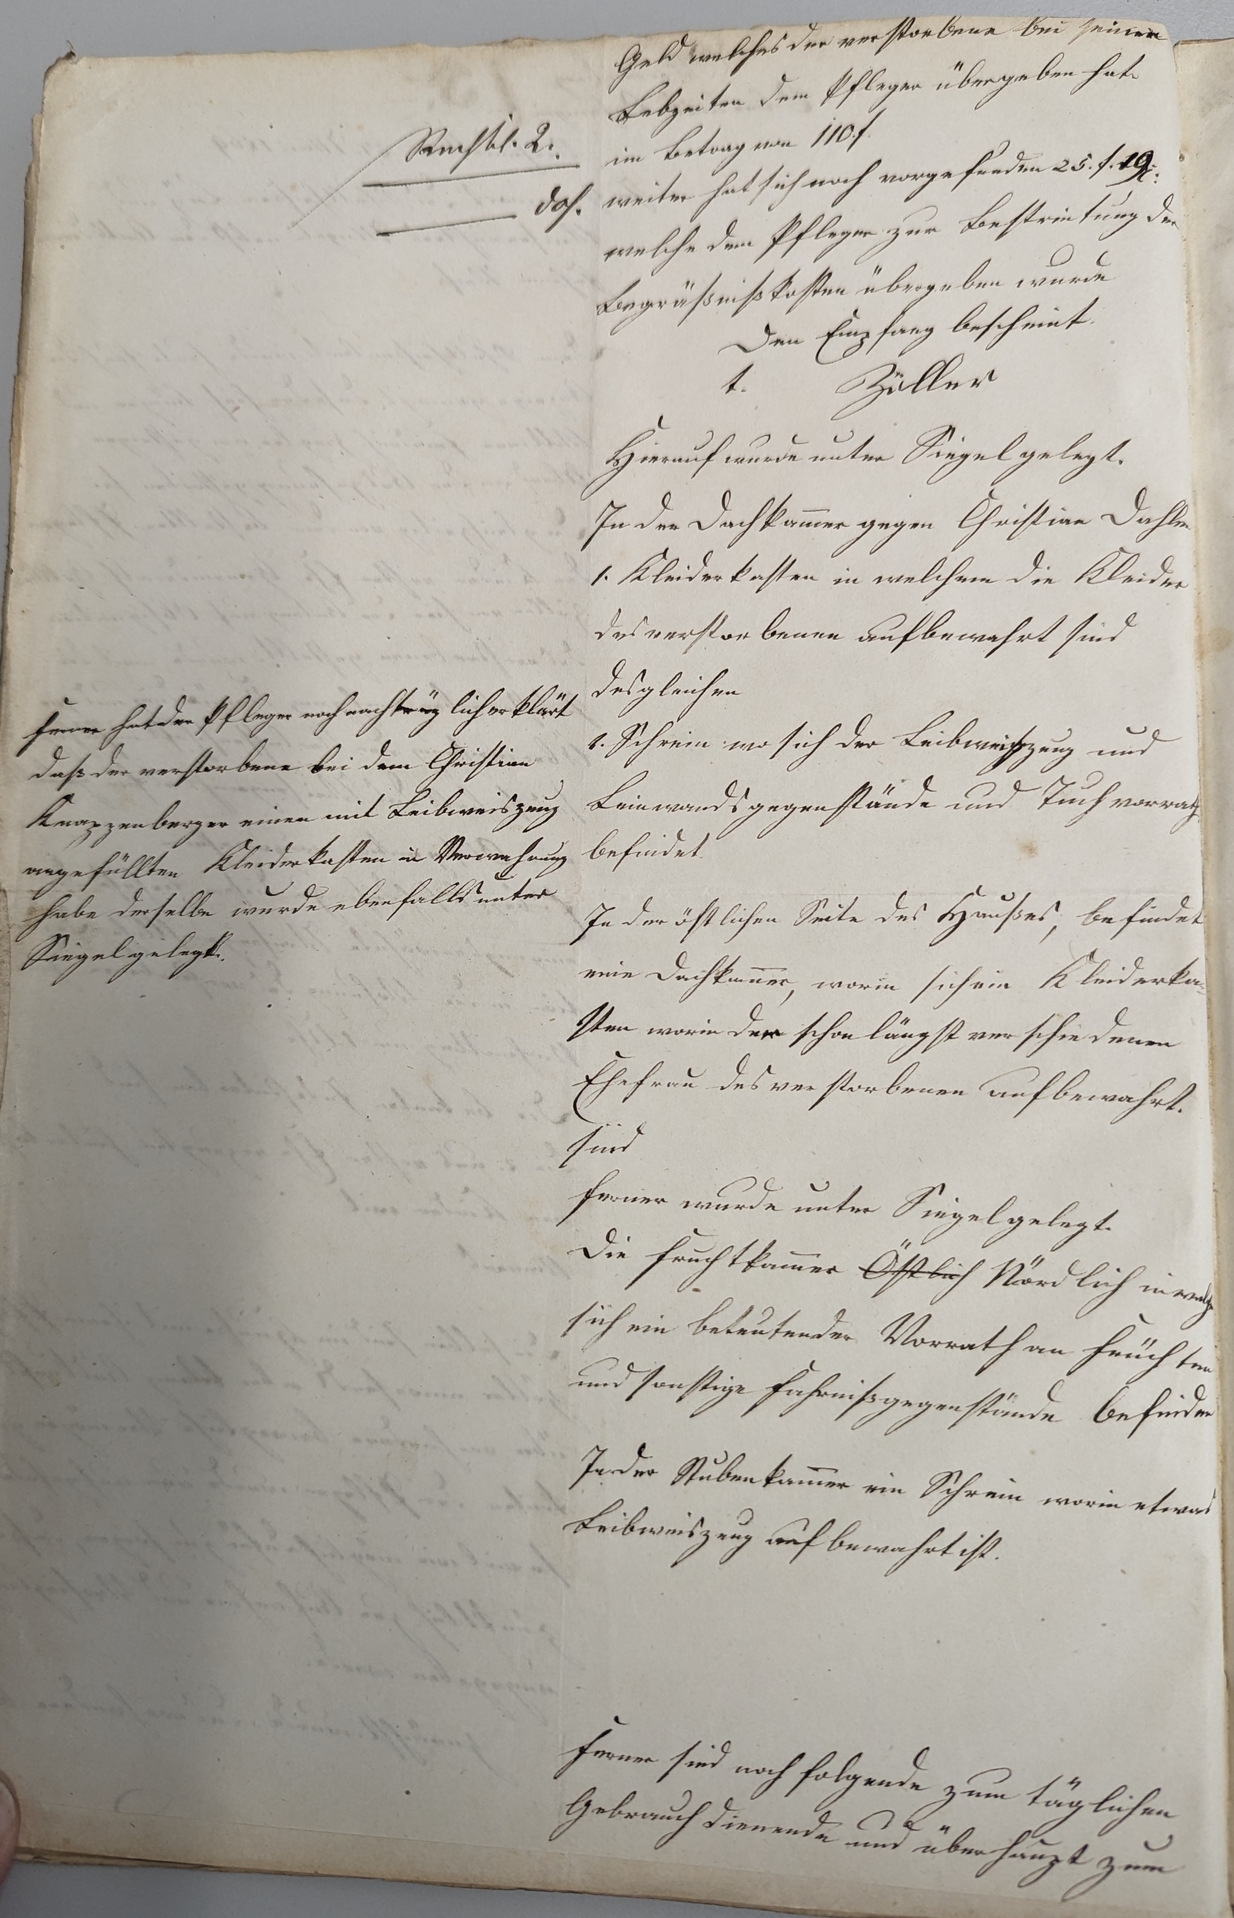 Geld welches der verstorbene bei seinen
Lebzeiten dem Pfleger übergeben hat.
im betrag von 110 f.
weiter hat sich noch vorgefunden 25. f. 19
welche dem Pfleger zur Bestreitung der
Begräßnißkosten übergeben wurde
Den Empfang bescheint.
t. Zöller
Hierauf wurde unter Siegel gelegt.
In der Dachkam̅er gegen Christian Dahlem
1. Kleiderkasten in welchem die Kleider
des verstorbenen aufbewahrt sind
desgleichen
1. Schrein wo sich der Leibweißzeug und
Leinwandsgegenstände und Tuchvorrath
befindet
In der östlichen Seite des Haußes, befindet
eine Dachkam̅er, worin sich ein Kleiderka-
sten worin der schon längst verschiedenen
Ehefrau des verstorbenen aufbewahrt.
sind
ferner wurde unter Siegel gelegt.
Die Fruchtkam̅er Östlich Nördlich in welch
sich ein beteutender Vorrath an Früchten
und sonstige Fahrnißgegenstände befinden
In der Stubenkam̅er ein Schrein worin etwas
Leibweiszeug aufbewahrt ist.
Ferner sind noch folgende zum täglichen
Gebrauch dienende und überhaupt zum
2.
das.
Ferner hat der Pfleger noch nachträglich erklärt
daß der verstorbene bei dem Christian
Knappenberger einen mit Leibweiszeug
angefüllten Kleiderkasten in Verwahrung
habe derselbe wurde ebenfalls unter
Siegel gelegt.